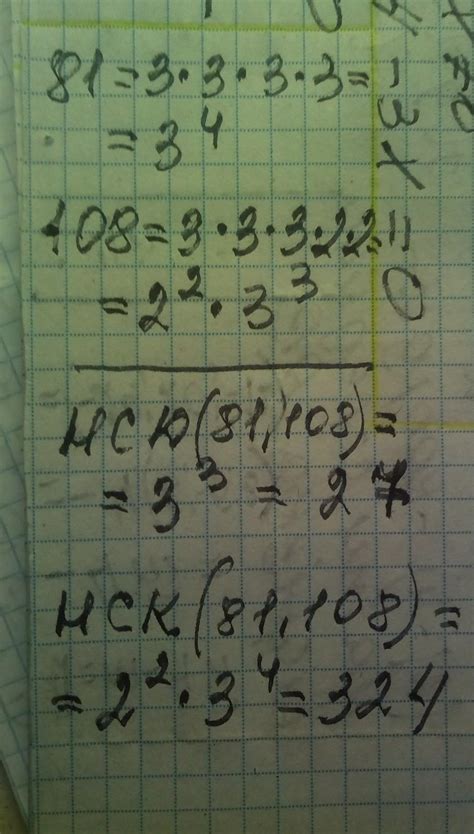 81 = 3 · 3 · 3 · 3 =
= 3⁴
108 = 3 · 3 · 3 · 2 · 2 =
= 2² · 3³
НСЮ(81,108) =
= 3³ = 27
НСК(81,108) =
= 2² · 3⁴ = 324